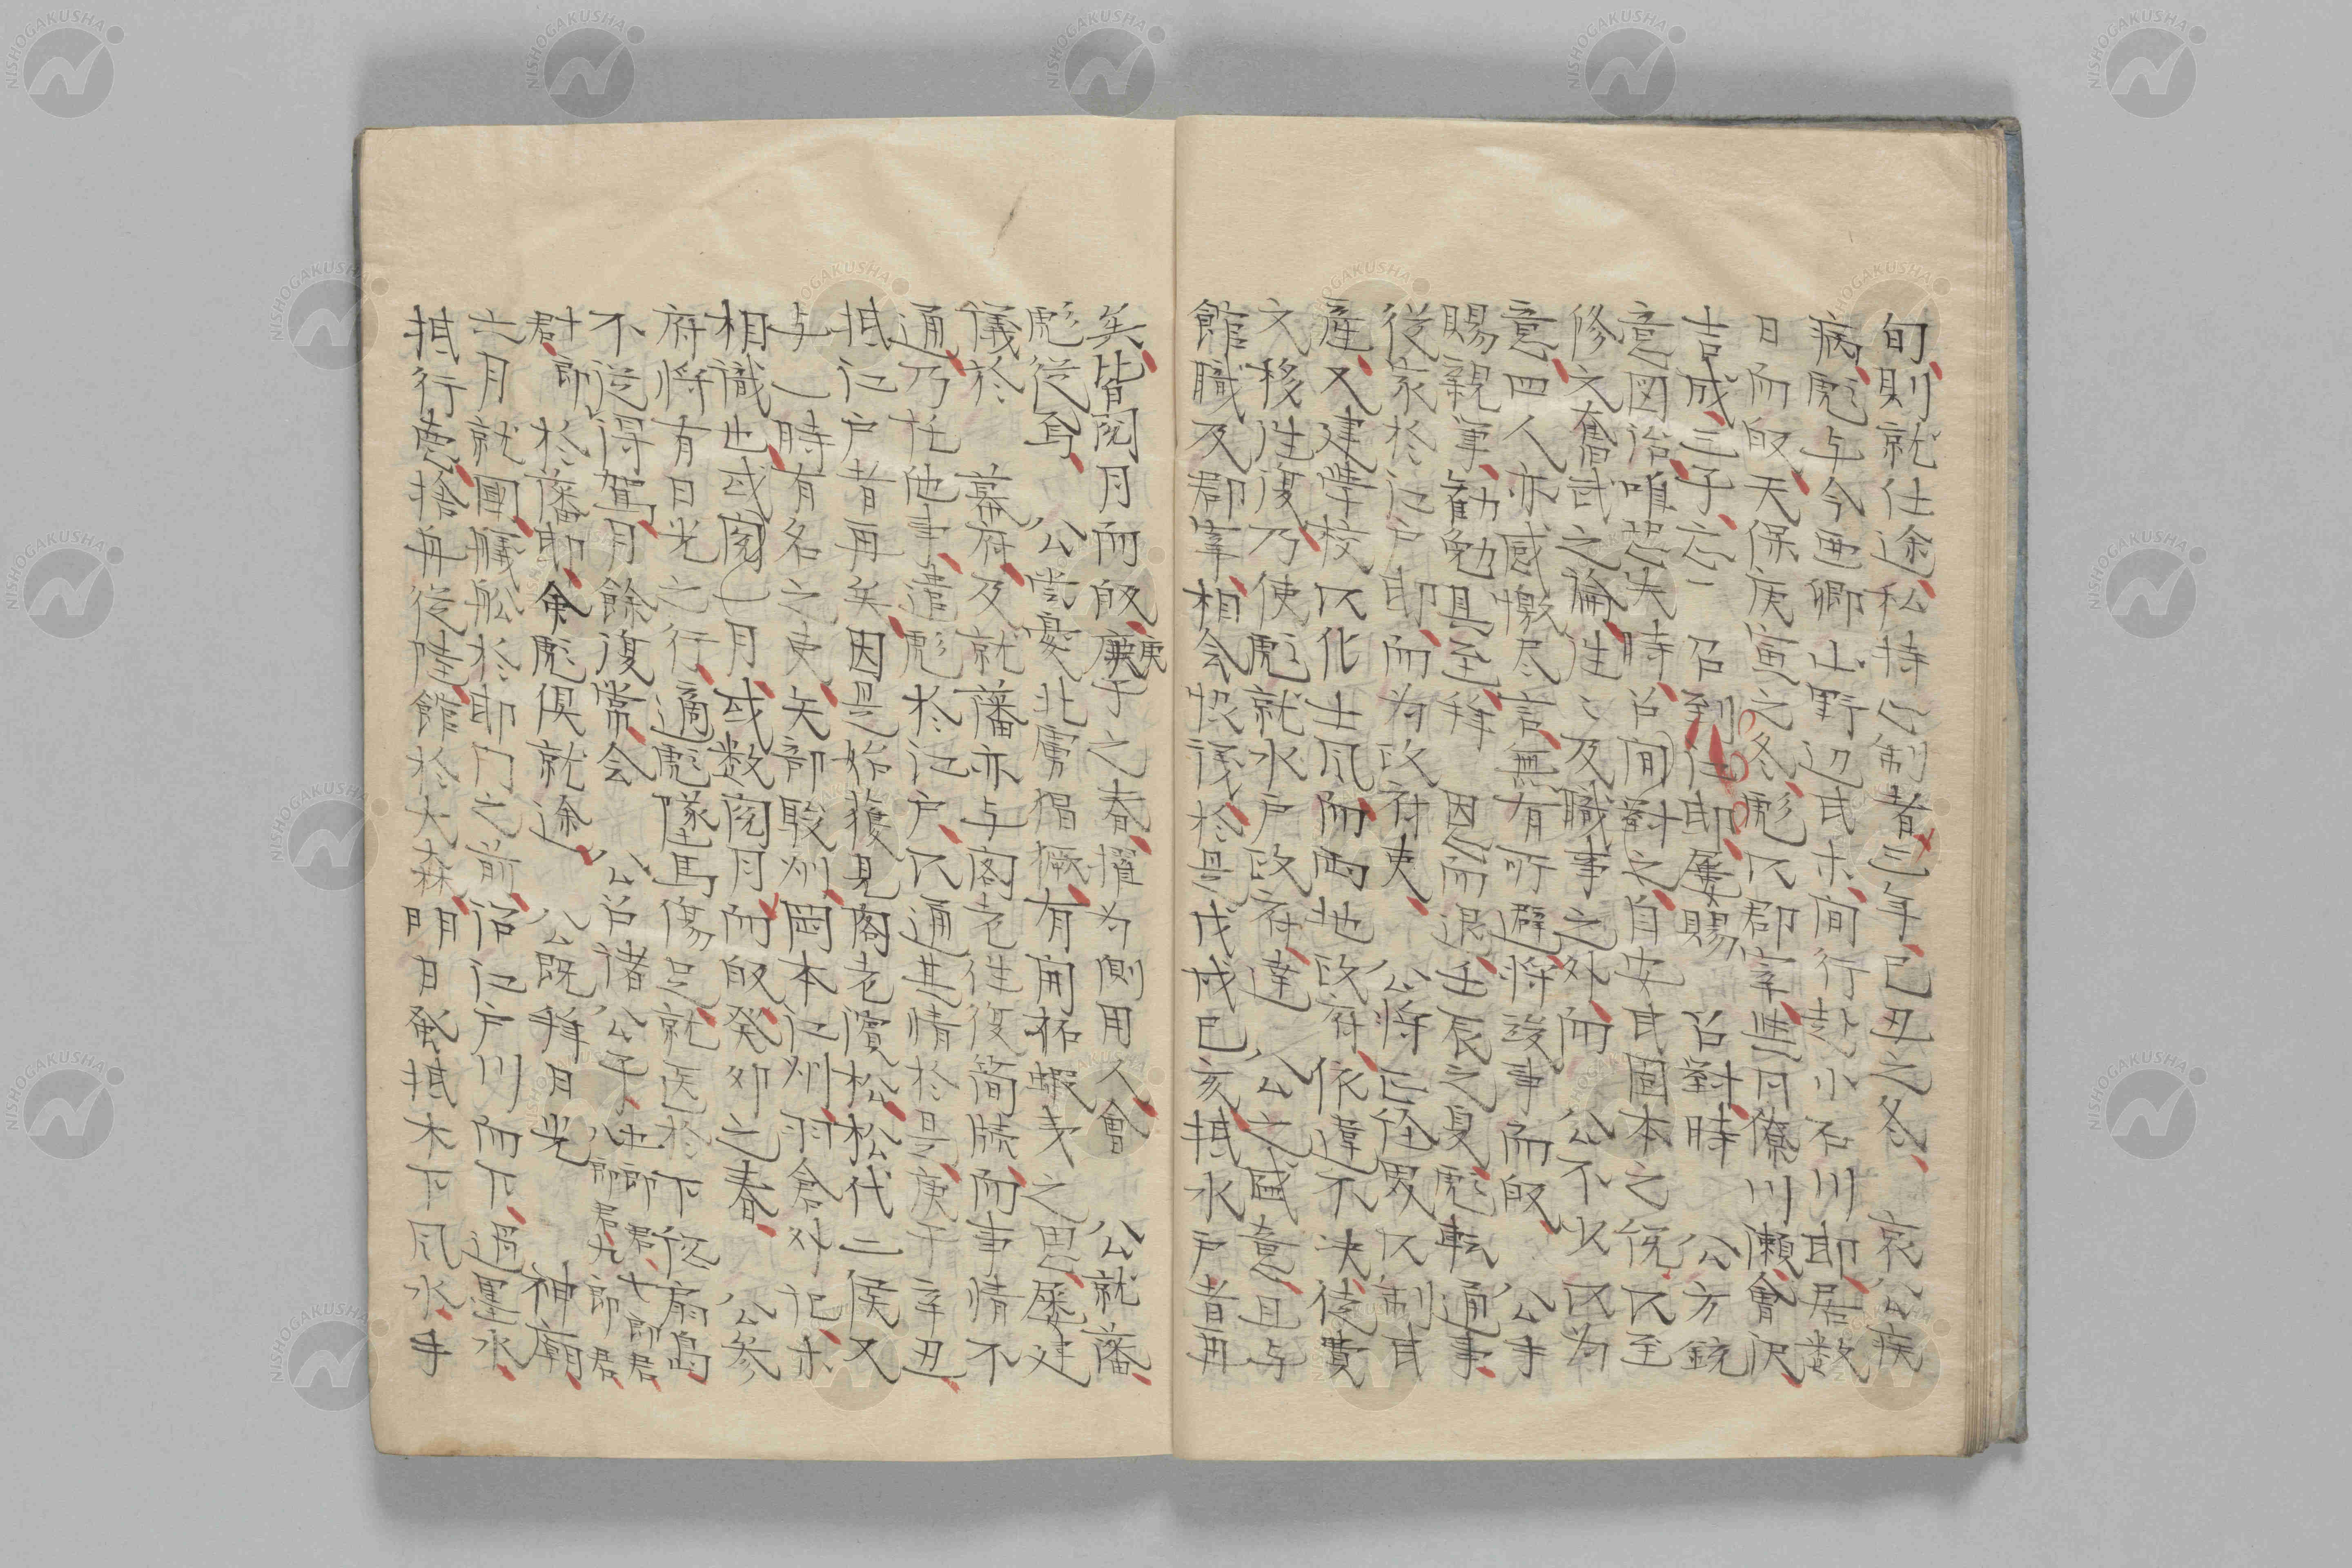 旬、則就仕途、私持心制者三年、己丑之冬、 哀公疾
病、彪与今西卿山野辺氏木、间行赴小石川邸、居数
日而皈、天保庚寅之冬、彪以郡宰、与同僚川瀬會沢
吉成、三子、忘一 召到江邸、屢賜 召對、時 公方鋭
意図治、唯恐失時、召间對之、自安民固本之侻、以至
修文奮武之論、徃〻及職事之外、而 公不必以為
意、四人亦感激尽言、無有所避、将竣事而皈、 公手
賜親筆、勧勉且至、拜 恩而退、壬辰之夏、彪転通事、
従家於江户邸、而为政府吏、 公将正径界以制民
産、又建学校以化士风、而两地政府、依違不决、徒費
文移徃復、乃使彪就水户政府、達 公之盛意、且与
館職及郡宰、相会悞後於是戊戌己亥、抵水户者再
矣、皆閲月而皈、庚子之春、擢为側用人、會 公就藩、
彪従焉、 公嘗憂北虜猖獗、有開拓蝦夷之思、屡建
儀於 幕府、及就藩亦与閣老徃復简牍、而事情不
通、乃任他事、遣彪於江户、以通其情於是、庚子辛丑、
抵江户者再矣、因是始獲見閣老濱松、松代二侯、又
与一時有名之吏、矢部駿州、岡本江州、羽倉外记、亦
相識也、或閲一月、或数閲月、而皈、癸卯之春、 公参
府将有日光之行、適彪墜馬傷足、就医於下谷扇島
不従得駕、月餘復常、会 公召諸公子、五郎君、七郎君、八郎君、九郎君、
十郎君、於藩邸、余彪俱就途、 公既拜日光 神廟、
六月就國、艤舩於邸门之前、沿江户川而下、過墨水、
抵行悳、捨舟従陸、館於大森、明日發抵木下风水、手